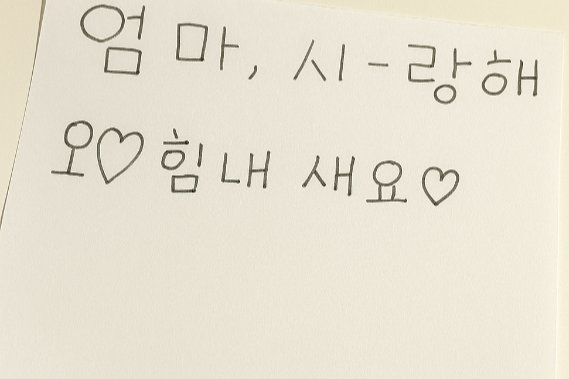 엄마, 시-랑해
오♡힘내 새요♡